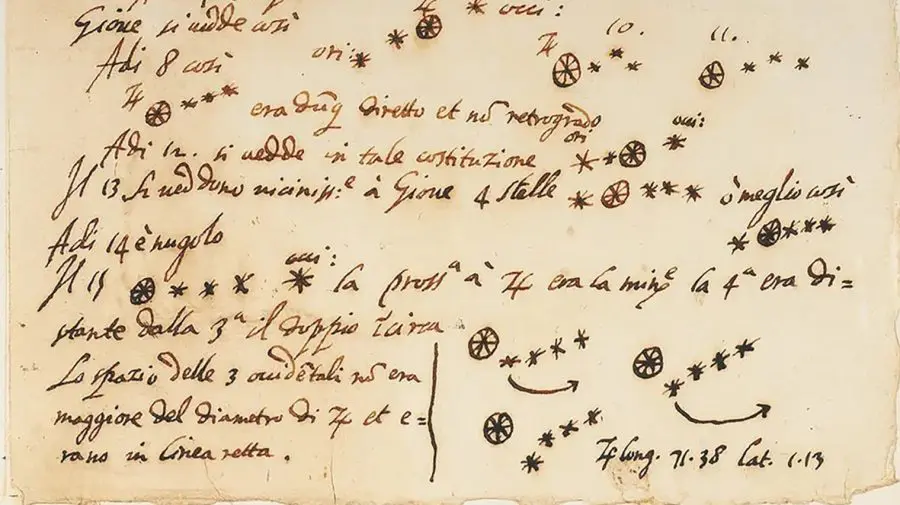 Gioue si uedde così ♃ occi:
Adi 8 così ori:
♃ 10. 11.
♃ era dūq̃ diretto et nō retrogrado
Adi 12. si uedde in tale costituzione ori occi:
Il 13 si ueddono uiciniss.e à Gioue 4 stelle ò meglio così
Adi 14 è nugolo
Il 15 occi: la pross.a à ♃ era la min.e la 4.a era di=
stante dalla 3.a il doppio ĩcirca
Lo spazio delle 3 occidētali nō era
maggiore del diametro di ♃ et e=
rano in linea retta.
♃ long. 71.38 lat. 1.13